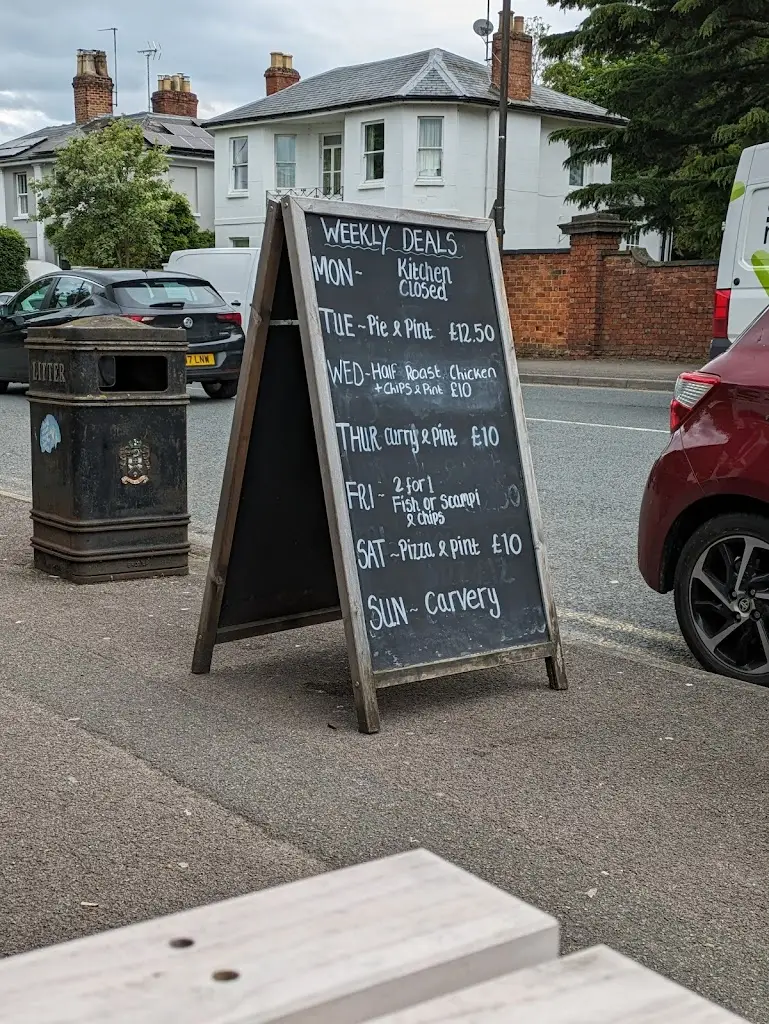 WEEKLY DEALS
MON- Kitchen
Closed
TUE ~ Pie & Pint £12.50
WED - Half Roast Chicken
+ CHIPS & Pint £10
THUR Curry & Pint £10
FRI ~ 2 for 1
Fish or Scampi
& Chips
SAT ~ Pizza & pint £10
SUN ~ Carvery
LITTER
7 LNW